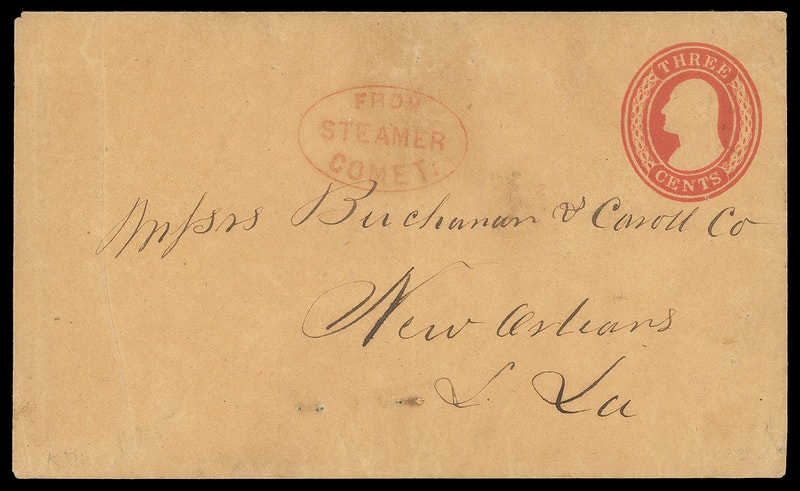 THREE
CENTS
FROM
STEAMER
COMET.
Messrs Buchanan & Caroll Co
New Orleans
L. La